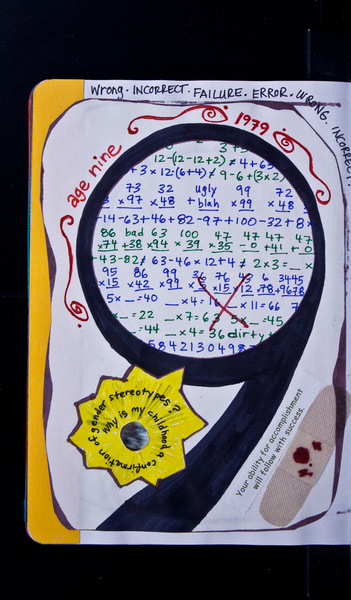 Wrong. INCORRECT. FAILURE. ERROR. WRONG. INCORRECT.
age nine
1979
12-(12-12+2) ≠ 4+63
+3 x 12·(6+4) ≠ 9-6+(3x2)
73 32 ugly 99 72
x97 x48 + blah x99 x48
-14-63+46+82-97+100-32+8x
86 bad 63 100 47 47 47 47
x74 +38 x94 x39 x35 -0 +41 +0
+43-82 ≠ 63-46x12+4 ≠ 2x3=__x
95 86 99 36 76 45 6 3445
x15 x42 x99 x15 x12 .78 +9678
5x__=40 __x4=16 __x11=66
__=22 __x7=63 5x__=45
=44 __x4=36 dirty +
584213049
confirmation of gender stereotypes?
Why is my childhood a
Your ability for accomplishment
will follow with success.